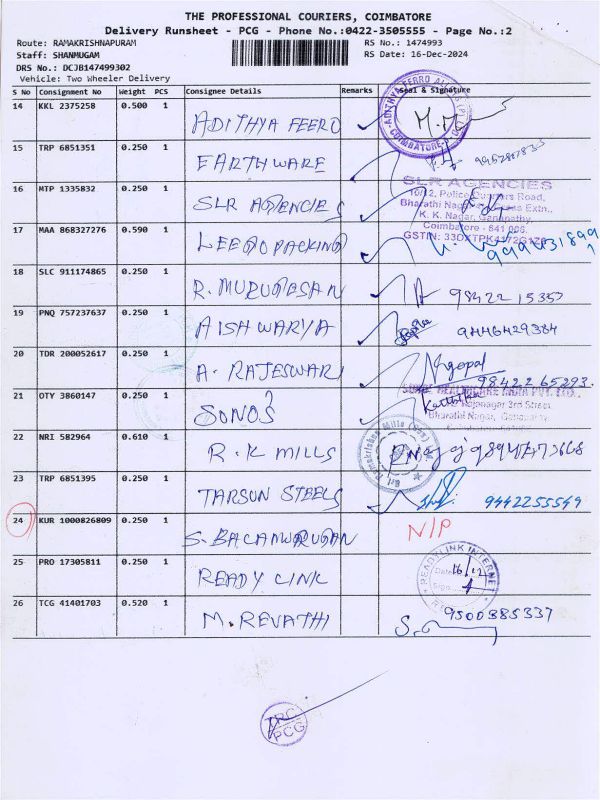 THE PROFESSIONAL COURIERS, COIMBATORE
Delivery Runsheet - PCG - Phone No.:0422-3505555 - Page No.:2
Route: RAMAKRISHNAPURAM
RS No.: 1474993
Staff: SHANMUGAM
RS Date: 16-Dec-2024
DRS No.: DCJB147499302
Vehicle: Two Wheeler Delivery
S No Consignment No Weight PCS Consignee Details Remarks Seal & Signature
14 KKL 2375258 0.500 1
ADITHYA FEERO
ADITHYA FERRO
COIMBATORE
M.M
15 TRP 6851351 0.250 1
EARTHWARE
16 MTP 1335832 0.250 1
SLR AGENCIES
SLR AGENCIES
K. K. Nagar, Ganapathy,
Coimbatore - 641 006.
17 MAA 868327276 0.590 1
LEEGO PACKING
18 SLC 911174865 0.250 1
R. MURUGESAN
98422 15353
19 PNQ 757237637 0.250 1
AISHWARYA
9446429384
20 TDR 200052617 0.250 1
A. RAJESWARI
98422 65293.
21 OTY 3860147 0.250 1
SONOS
3rd Street
Bharathi Nagar, Ganapathy
22 NRI 582964 0.610 1
R.K MILLS
Sri Ramakrishna Mills
23 TRP 6851395 0.250 1
TARSUN STEELS
9442255549
24 KUR 1000826809 0.250 1
S. BALAMURUGAN
N/P
25 PRO 17305811 0.250 1
READY LINK
READYLINK INTERNET
Date 16/12
Sign
26 TCG 41401703 0.520 1
M. REVATHI
9500385337
PCG